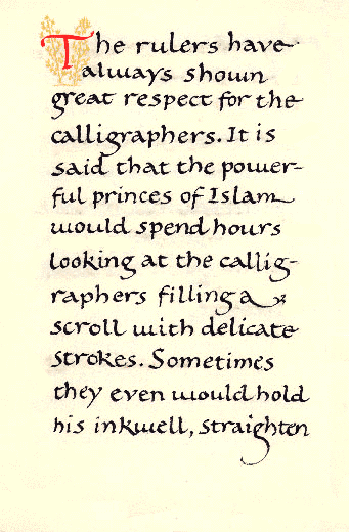 The rulers have
always shown
great respect for the
calligraphers. It is
said that the power-
ful princes of Islam
would spend hours
looking at the callig-
raphers filling a
scroll with delicate
strokes. Sometimes
they even would hold
his inkwell, straighten